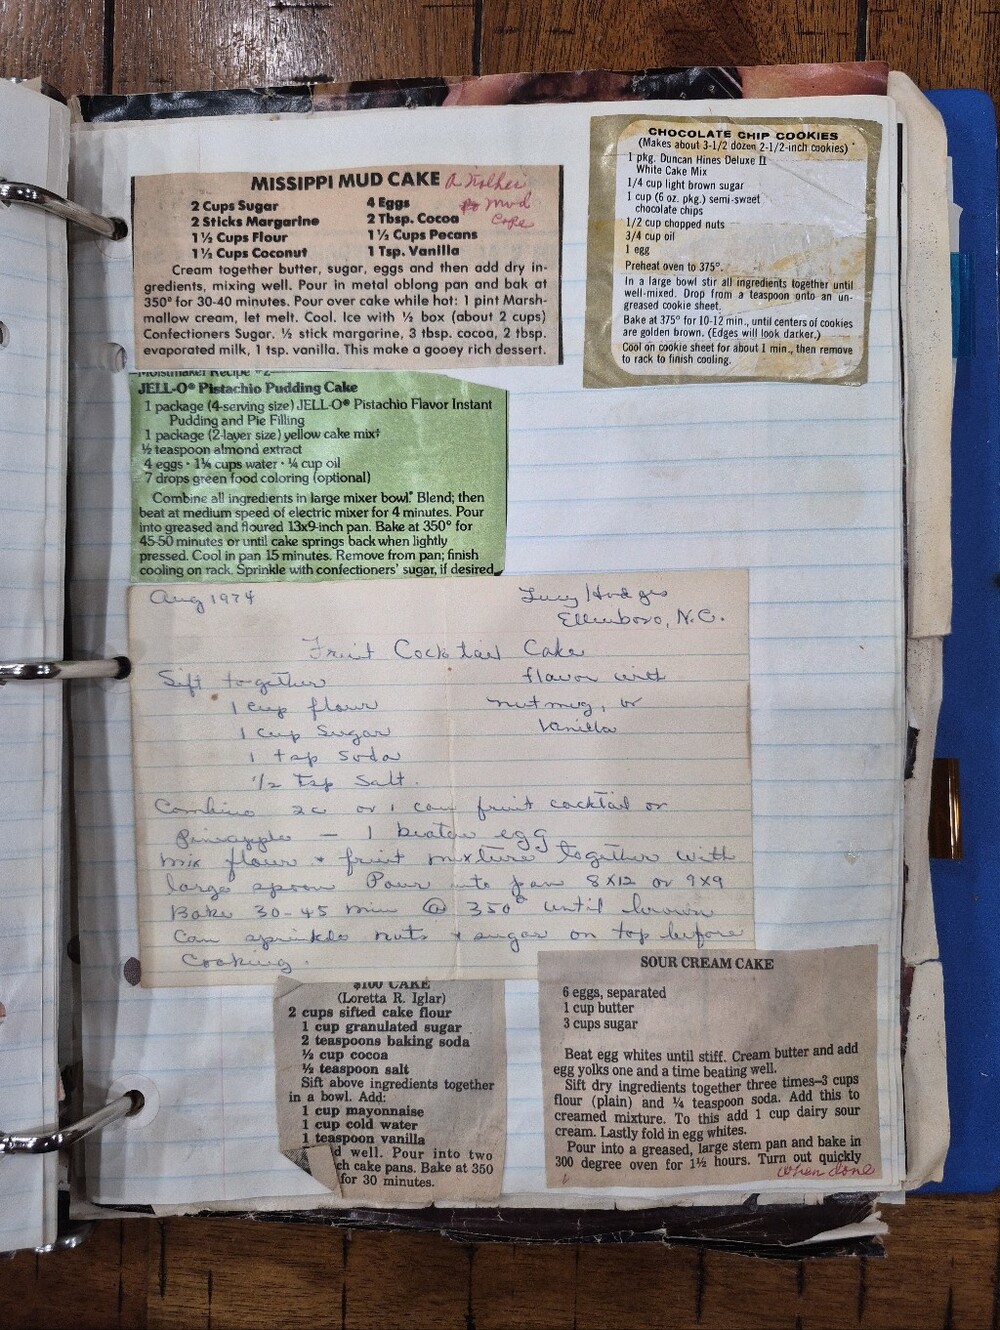 MISSIPPI MUD CAKE
Mud
2 Cups Sugar
2 Sticks Margarine
1½ Cups Flour
1½ Cups Coconut
4 Eggs
2 Tbsp. Cocoa
1½ Cups Pecans
1 Tsp. Vanilla
Cream together butter, sugar, eggs and then add dry in-
gredients, mixing well. Pour in metal oblong pan and bak at
350° for 30-40 minutes. Pour over cake while hot: 1 pint Marsh-
mallow cream, let melt. Cool. Ice with ½ box (about 2 cups)
Confectioners Sugar. ½ stick margarine, 3 tbsp. cocoa, 2 tbsp.
evaporated milk, 1 tsp. vanilla. This make a gooey rich dessert.
CHOCOLATE CHIP COOKIES
(Makes about 3-1/2 dozen 2-1/2-inch cookies)
1 pkg. Duncan Hines Deluxe II
White Cake Mix
1/4 cup light brown sugar
1 cup (6 oz. pkg.) semi-sweet
chocolate chips
1/2 cup chopped nuts
3/4 cup oil
1 egg
Preheat oven to 375°.
In a large bowl stir all ingredients together until
well-mixed. Drop from a teaspoon onto an un-
greased cookie sheet.
Bake at 375° for 10-12 min., until centers of cookies
are golden brown. (Edges will look darker.)
Cool on cookie sheet for about 1 min., then remove
to rack to finish cooling.
Moistmaker Recipe #2
JELL-O® Pistachio Pudding Cake
1 package (4-serving size) JELL-O® Pistachio Flavor Instant
Pudding and Pie Filling
1 package (2-layer size) yellow cake mix†
½ teaspoon almond extract
4 eggs • 1¼ cups water • ¼ cup oil
7 drops green food coloring (optional)
Combine all ingredients in large mixer bowl.* Blend; then
beat at medium speed of electric mixer for 4 minutes. Pour
into greased and floured 13x9-inch pan. Bake at 350° for
45-50 minutes or until cake springs back when lightly
pressed. Cool in pan 15 minutes. Remove from pan; finish
cooling on rack. Sprinkle with confectioners' sugar, if desired.
Aug 1974
Lucy Hodges
Ellenboro, N.C.
Fruit Cocktail Cake
Sift together
1 cup flour
1 cup Sugar
1 tsp Soda
1/2 Tsp Salt.
flavor with
nutmug, or
Vanilla
Combine 2c or 1 can fruit cocktail or
Pineapple — 1 beaten egg
mix flour & fruit mixture together with
large spoon Pour into pan 8X12 or 9X9
Bake 30-45 min @ 350° until brown
Can sprinkle nuts & sugar on top before
Cooking.
$100 CAKE
(Loretta R. Iglar)
2 cups sifted cake flour
1 cup granulated sugar
2 teaspoons baking soda
½ cup cocoa
½ teaspoon salt
Sift above ingredients together
in a bowl. Add:
1 cup mayonnaise
1 cup cold water
1 teaspoon vanilla
d well. Pour into two
ch cake pans. Bake at 350
for 30 minutes.
SOUR CREAM CAKE
6 eggs, separated
1 cup butter
3 cups sugar
Beat egg whites until stiff. Cream butter and add
egg yolks one and a time beating well.
Sift dry ingredients together three times–3 cups
flour (plain) and ¼ teaspoon soda. Add this to
creamed mixture. To this add 1 cup dairy sour
cream. Lastly fold in egg whites.
Pour into a greased, large stem pan and bake in
300 degree oven for 1½ hours. Turn out quickly
when done